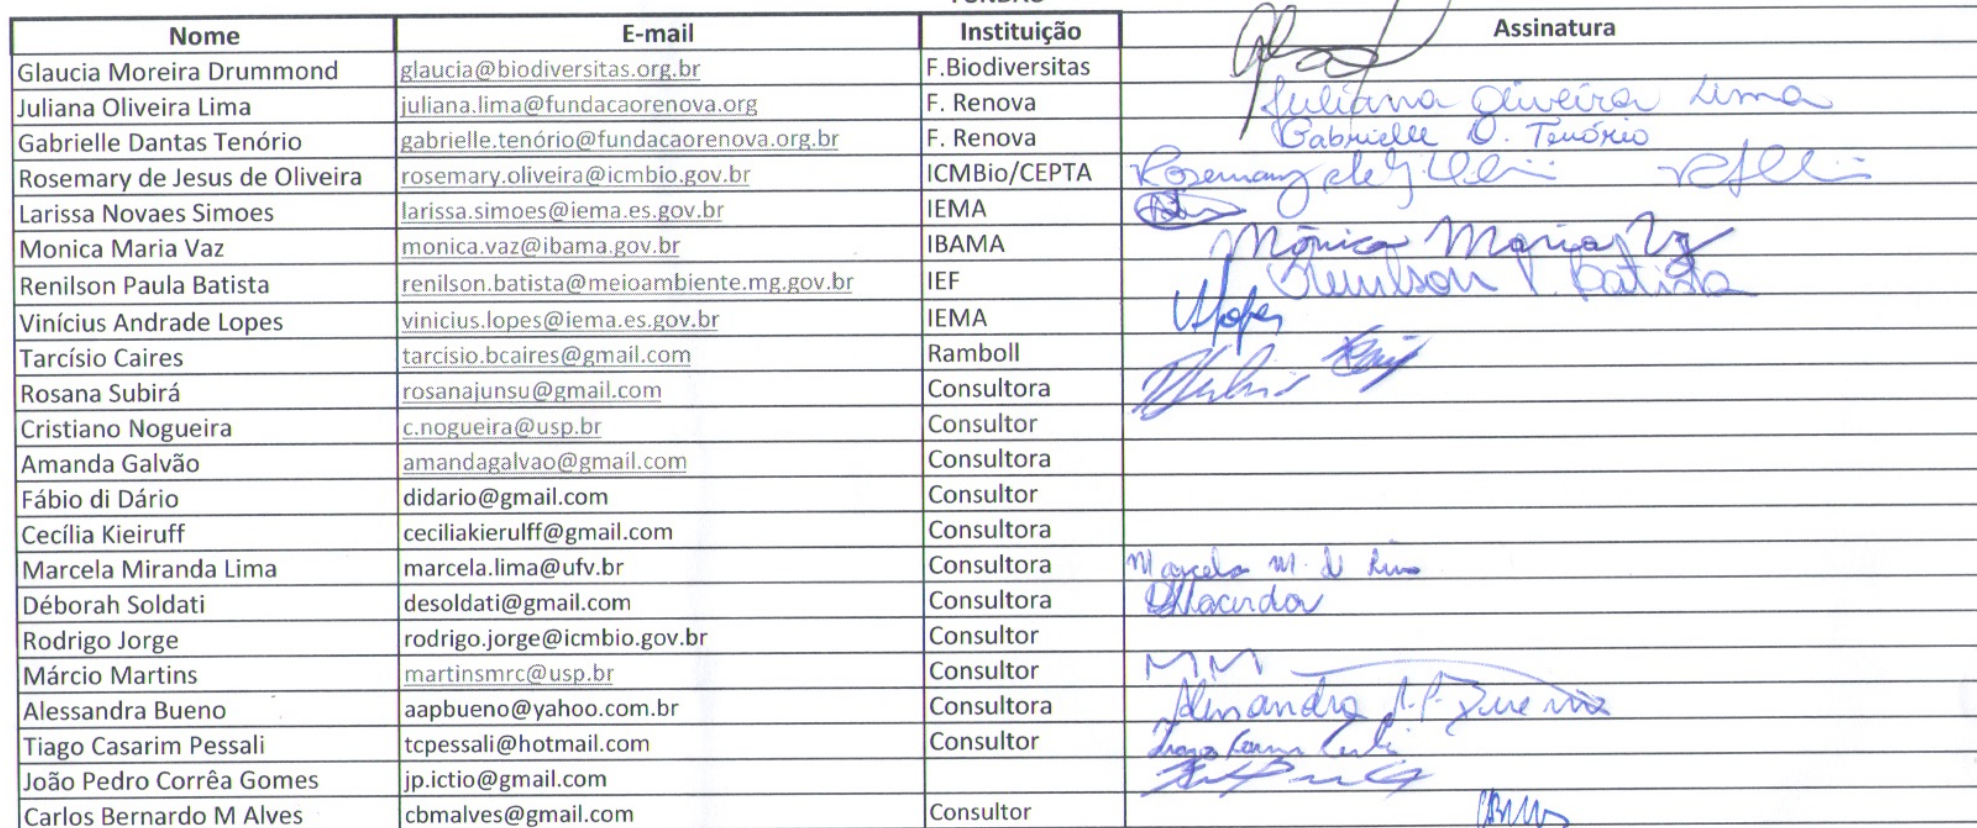 Nome E-mail Instituição Assinatura
Glaucia Moreira Drummond glaucia@biodiversitas.org.br F.Biodiversitas
Juliana Oliveira Lima juliana.lima@fundacaorenova.org F. Renova Juliana Oliveira Lima
Gabrielle Dantas Tenório gabrielle.tenório@fundacaorenova.org.br F. Renova Gabrielle D. Tenório
Rosemary de Jesus de Oliveira rosemary.oliveira@icmbio.gov.br ICMBio/CEPTA Rosemary de J.
Larissa Novaes Simoes larissa.simoes@iema.es.gov.br IEMA
Monica Maria Vaz monica.vaz@ibama.gov.br IBAMA Mônica Maria Vaz
Renilson Paula Batista renilson.batista@meioambiente.mg.gov.br IEF Renilson P. Batista
Vinícius Andrade Lopes vinicius.lopes@iema.es.gov.br IEMA VLopes
Tarcísio Caires tarcisio.bcaires@gmail.com Ramboll
Rosana Subirá rosanajunsu@gmail.com Consultora
Cristiano Nogueira c.nogueira@usp.br Consultor
Amanda Galvão amandagalvao@gmail.com Consultora
Fábio di Dário didario@gmail.com Consultor
Cecília Kieiruff ceciliakierulff@gmail.com Consultora
Marcela Miranda Lima marcela.lima@ufv.br Consultora Marcela M. de Lima
Déborah Soldati desoldati@gmail.com Consultora
Rodrigo Jorge rodrigo.jorge@icmbio.gov.br Consultor
Márcio Martins martinsmrc@usp.br Consultor MM
Alessandra Bueno aapbueno@yahoo.com.br Consultora
Tiago Casarim Pessali tcpessali@hotmail.com Consultor
João Pedro Corrêa Gomes jp.ictio@gmail.com
Carlos Bernardo M Alves cbmalves@gmail.com Consultor